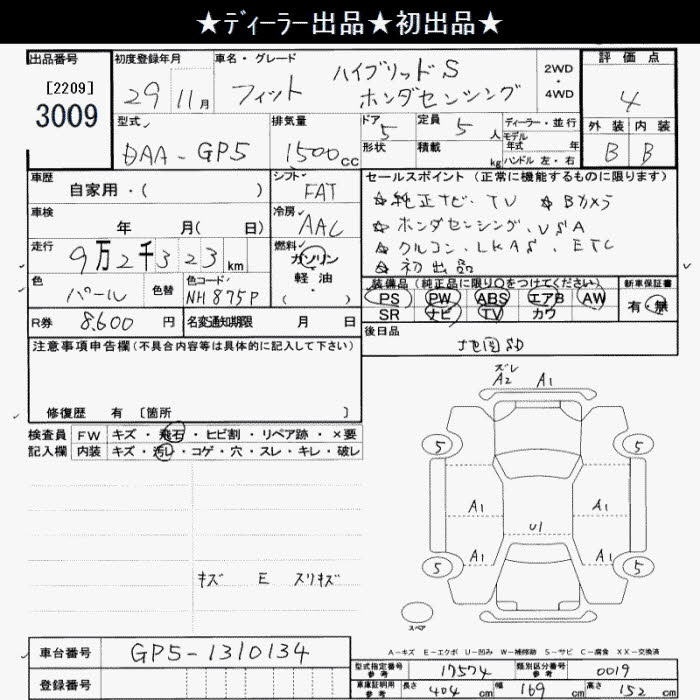 ★ディーラー出品★初出品★
出品番号 [2209] 3009
初度登録年月 29 11月
車名・グレード フィット ハイブリッドS ホンダセンシング
2WD・4WD
評価点 4
外装 内装
B B
型式 DAA-GP5
排気量 1500cc
ドア 5 形状
定員 5人 積載 kg
ディーラー・並行
モデル年式 年
ハンドル 左・右
車歴 自家用・( )
シフト FAT
車検 年 月( 日)
冷房 AAC
走行 9万2千323km
燃料 ガソリン 軽油 ・( )
色 パール 色替
色コード NH875P
R券 8.600円
名変通知期限 月 日
セールスポイント (正常に機能するものに限ります)
☆純正ナビ、TV ☆Bカメラ
☆ホンダセンシング、VSA
☆クルコン、LKAS、ETC
☆初出品
装備品(純正品に限り○をつけてください)
PS PW ABS エアB AW
SR ナビ TV カワ
新車保証書 有・無
後日品 地図SD
注意事項申告欄(不具合内容等は具体的に記入して下さい)
修復歴 有 [箇所 ]
検査員記入欄
FW キズ・飛石・ヒビ割・リペア跡・×要
内装 キズ・汚レ・コゲ・穴・スレ・キレ・破レ
キズ E スリキズ
ズレ
A2 A1
5 5
A1 A1
U1
A1 A1
5 5
スペア
A-キズ E-エクボ U-凹み W-補修跡 S-サビ C-腐食 XX-交換済
車台番号 GP5-1310134
登録番号
型式指定番号 参考 17574
類別区分番号 参考 0019
車庫証明用 参考 長さ 404cm 幅 169cm 高さ 152cm